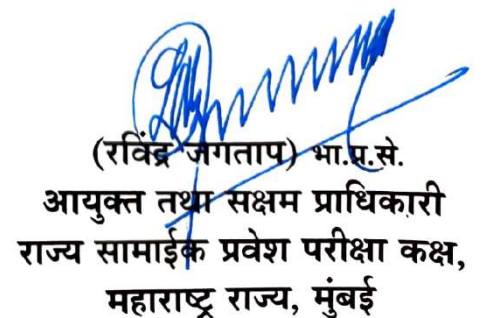 (रविंद्र जगताप) भा.प्र.से.
आयुक्त तथा सक्षम प्राधिकारी
राज्य सामाईक प्रवेश परीक्षा कक्ष,
महाराष्ट्र राज्य, मुंबई